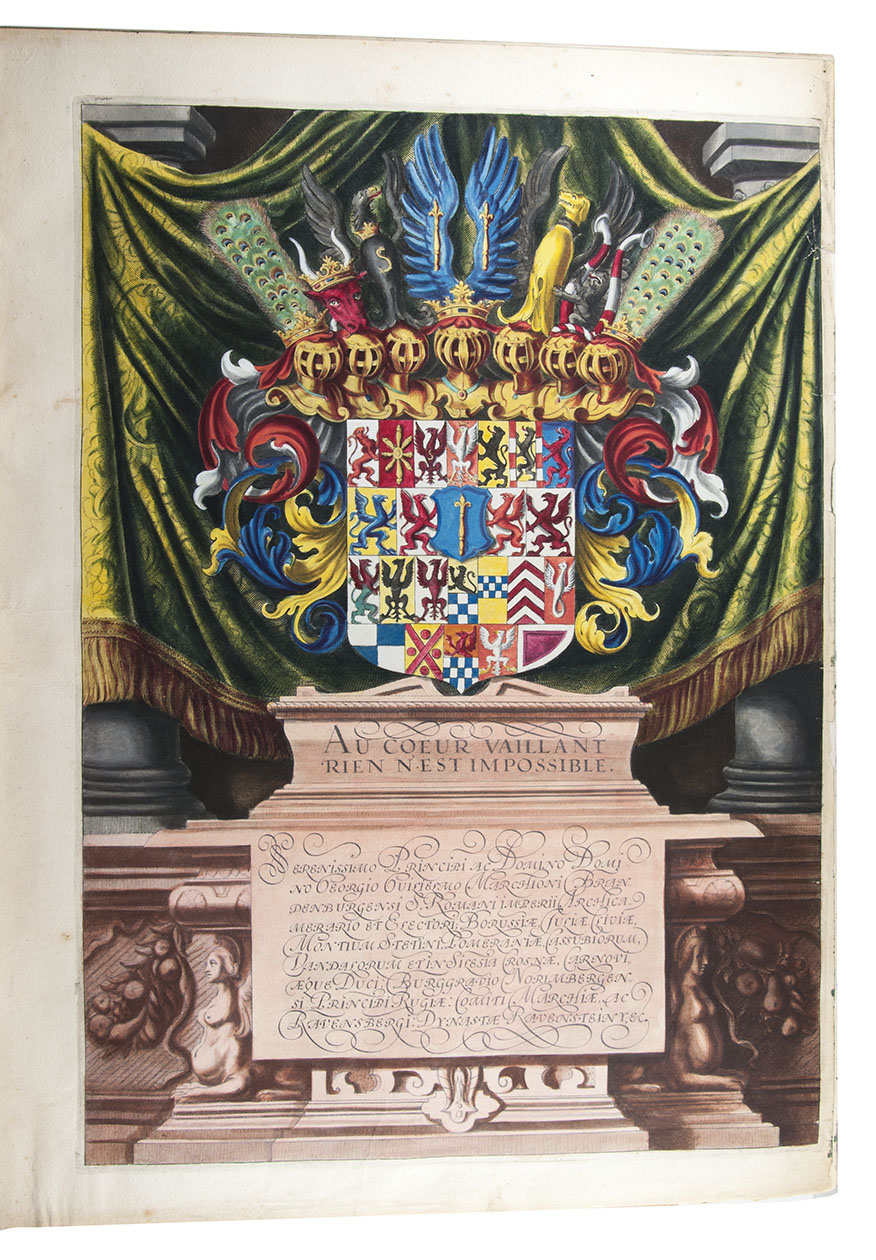 AU COEUR VAILLANT
RIEN N·EST IMPOSSIBLE.
SERENISSIMO PRINCIPI AC DOMINO DOMI
NO GEORGIO GUILIELMO MARCHIONI BRAN
DENBURGENSI S. ROMANI IMPERII ARCHICA
MERARIO ET ELECTORI, BORUSSIÆ, IULIÆ CLIVIÆ,
MONTIUM STETINI, POMERANIÆ, CASSUBIORUM,
VANDALORUM ET IN SILESIA CROSNÆ, CARNOVI
ÆQUE DUCI, BURGGRAVIO NORIMBERGEN
SI PRINCIPI RUGIÆ, COMITI MARCHIÆ, AC
RAVENSBERGI, DYNASTÆ RAVENSTEINY, EC.